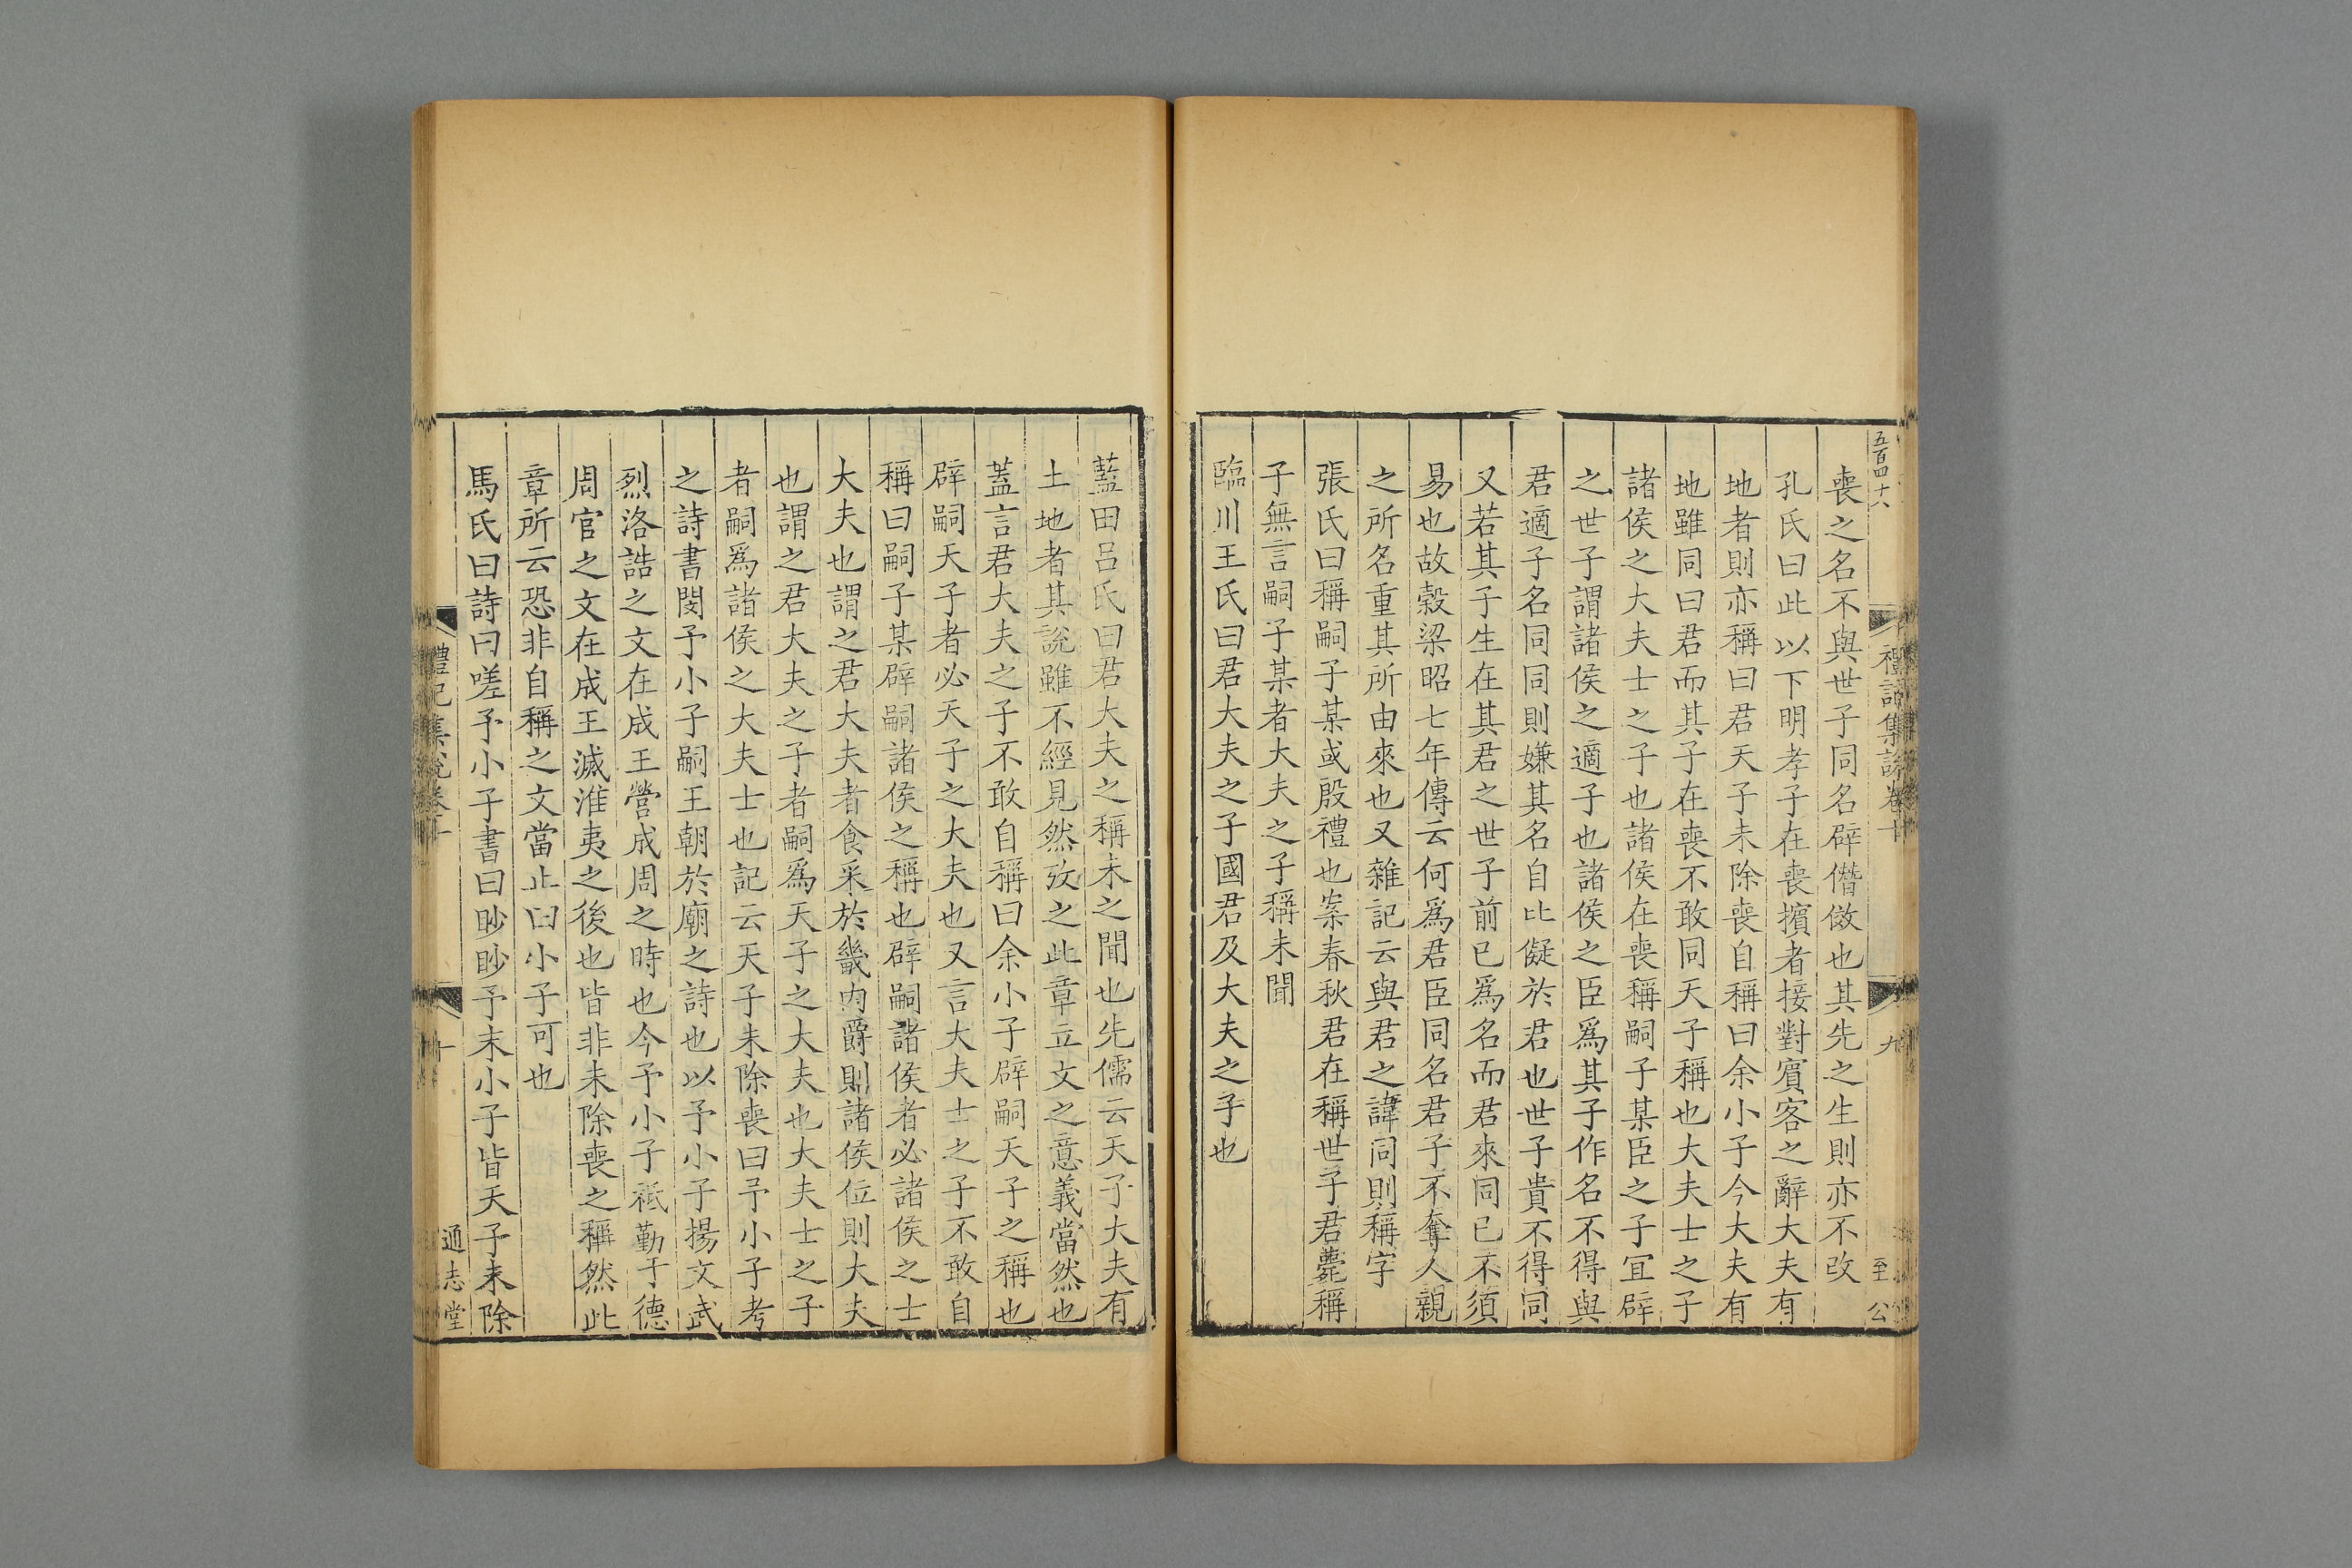 五百四十六
禮記集說卷十
九
至
公
喪之名不與世子同名辟僭傚也其先之生則亦不改
孔氏曰此以下明孝子在喪擯者接對賓客之辭大夫有
地者則亦稱曰君天子未除喪自稱曰余小子今大夫有
地雖同曰君而其子在喪不敢同天子稱也大夫士之子
諸侯之大夫士之子也諸侯在喪稱嗣子某臣之子宜辟
之世子謂諸侯之適子也諸侯之臣爲其子作名不得與
君適子名同同則嫌其名自比儗於君也世子貴不得同
又若其子生在其君之世子前已爲名而君來同已不須
易也故穀梁昭七年傳云何爲君臣同名君子不奪人親
之所名重其所由來也又雜記云與君之諱同則稱字
張氏曰稱嗣子某或殷禮也案春秋君在稱世子君薨稱
子無言嗣子某者大夫之子稱未聞
臨川王氏曰君大夫之子國君及大夫之子也
藍田呂氏曰君大夫之稱未之聞也先儒云天子大夫有
土地者其說雖不經見然攷之此章立文之意義當然也
蓋言君大夫之子不敢自稱曰余小子辟嗣天子之稱也
辟嗣天子者必天子之大夫也又言大夫士之子不敢自
稱曰嗣子某辟嗣諸侯之稱也辟嗣諸侯者必諸侯之士
大夫也謂之君大夫者食采於畿内爵則諸侯位則大夫
也謂之君大夫之子者嗣爲天子之大夫也大夫士之子
者嗣爲諸侯之大夫士也記云天子未除喪曰予小子考
之詩書閔予小子嗣王朝於廟之詩也以予小子揚文武
烈洛誥之文在成王營成周之時也今予小子祗勤于德
周官之文在成王滅淮夷之後也皆非未除喪之稱然此
章所云恐非自稱之文當止曰小子可也
馬氏曰詩曰嗟予小子書曰眇眇予末小子皆天子未除
禮記集說卷十
十
通志堂